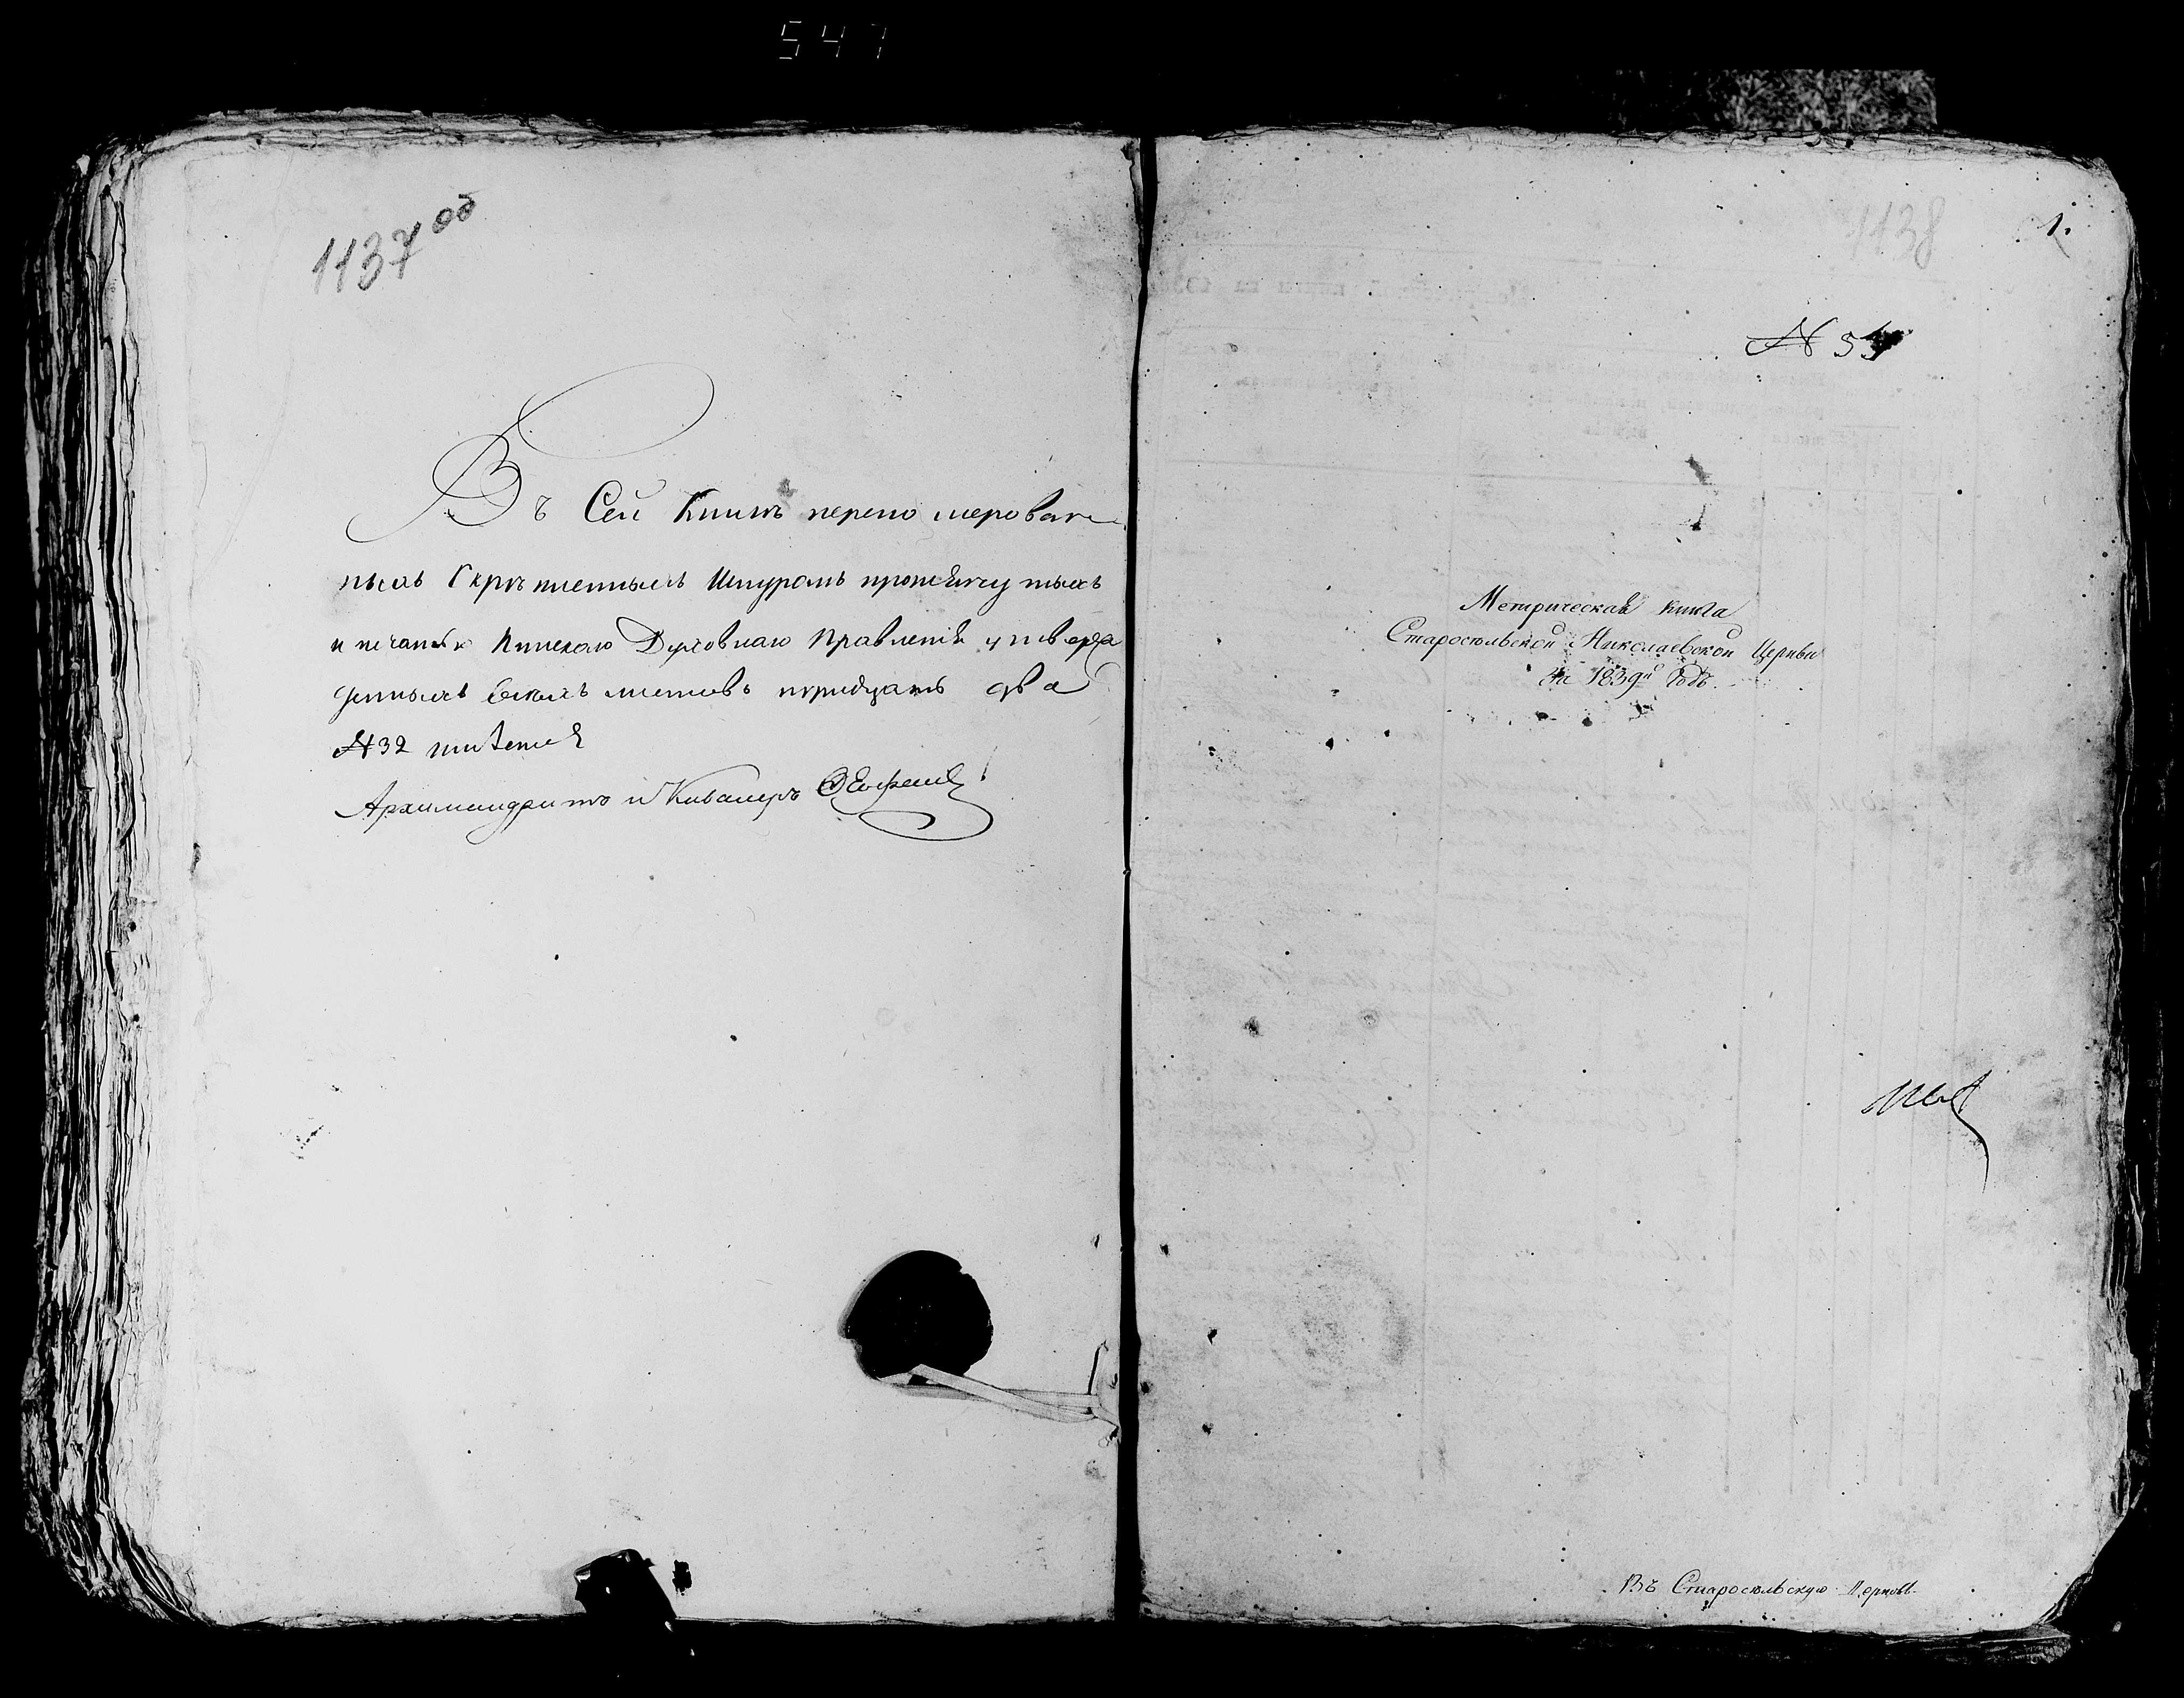 547
1137 об
Въ Сей Книгѣ перено мерован
ныхъ Скрѣпленныхъ Шнуромъ протянутыхъ
и печатью Пинскаго Духовнаго Правленія утверж
денныхъ всехъ листовъ тридцать два
№ 32 листа
Архимандритъ и Кавалеръ
1138
1.
№ 5
Метрическая книга
Старосельской Николаевской Церкви
на 1839й Годъ.
Въ Старосельскую Церковь